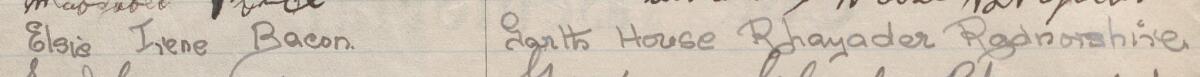 Elsie Irene Bacon. Garth House Rhayader Radnorshire.